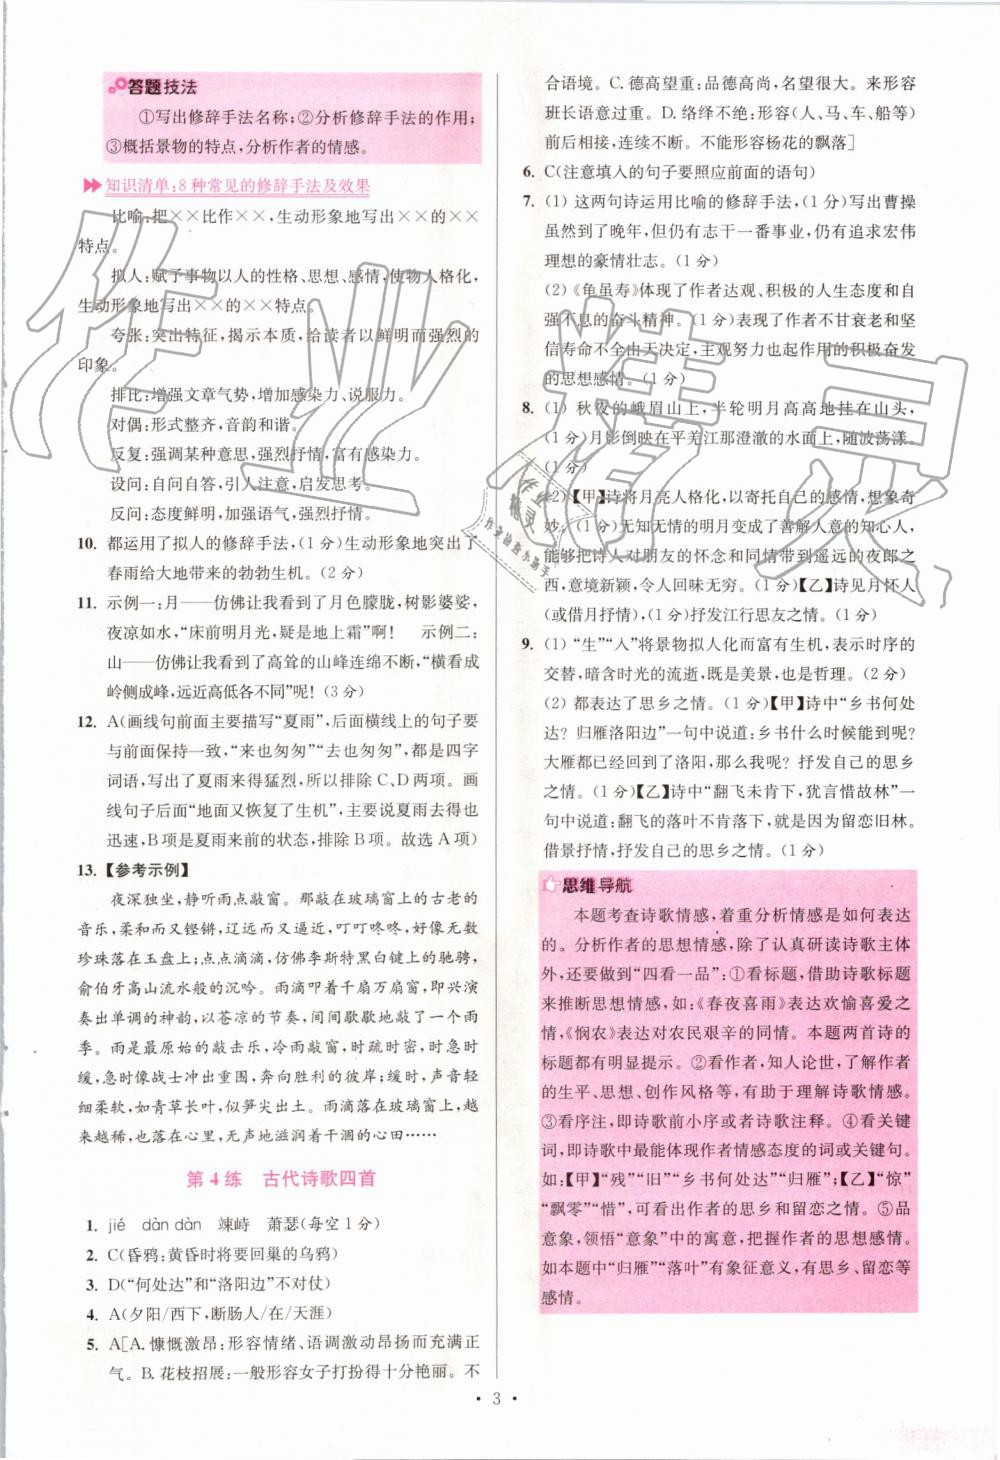 答题技法
①写出修辞手法名称;②分析修辞手法的作用;
③概括景物的特点,分析作者的情感。
知识清单:8种常见的修辞手法及效果
比喻:把××比作××,生动形象地写出××的××
特点。
拟人:赋予事物以人的性格、思想、感情,使物人格化,
生动形象地写出××的××特点。
夸张:突出特征,揭示本质,给读者以鲜明而强烈的
印象。
排比:增强文章气势,增加感染力、说服力。
对偶:形式整齐,音韵和谐。
反复:强调某种意思,强烈抒情,富有感染力。
设问:自问自答,引人注意,启发思考。
反问:态度鲜明,加强语气,强烈抒情。
10. 都运用了拟人的修辞手法,(1分)生动形象地突出了
春雨给大地带来的勃勃生机。(2分)
11. 示例一:月——仿佛让我看到了月色朦胧,树影婆娑,
夜凉如水,“床前明月光,疑是地上霜”啊! 示例二:
山——仿佛让我看到了高耸的山峰连绵不断,“横看成
岭侧成峰,远近高低各不同”呢!(3分)
12. A(画线句前面主要描写“夏雨”,后面横线上的句子要
与前面保持一致,“来也匆匆”“去也匆匆”,都是四字
词语,写出了夏雨来得猛烈,所以排除C、D两项。画
线句子后面“地面又恢复了生机”,主要说夏雨去得也
迅速,B项是夏雨来前的状态,排除B项。故选A项)
13.【参考示例】
夜深深,静听雨点敲窗。那敲在玻璃窗上的古老的
音乐,柔和而又铿锵,辽远而又逼近,叮叮咚咚,好像无数
珍珠落在玉盘上;点点滴滴,仿佛李斯特黑白键上的驰骋,
俞伯牙高山流水般的沉吟。雨滴调千扇万扇窗,即兴演
奏出单调的神韵,以苍凉的节奏,间间歇歇地敲了一个雨
季。雨是最原始的敲击乐,冷雨敲窗,时疏时密,时急时
缓,急时像战士冲出重围,奔向胜利的彼岸;缓时,声音轻
细柔软,如青草长叶,似笋尖出土。雨滴落在玻璃窗上,越
来越稀,也落在心里,无声地滋润着干涸的心田……
第4练 古代诗歌四首
1. jié dàn dàn 竦峙 萧瑟(每空1分)
2. C(昏鸦:黄昏时将要回巢的乌鸦)
3. D(“何处达”和“洛阳边”不对仗)
4. A(夕阳/西下,断肠人/在/天涯)
5. A[A.慷慨激昂:形容情绪、语调激动昂扬而充满正
气。B.花枝招展:一般形容女子打扮得十分艳丽。不
合语境。C.德高望重:品德高尚,名望很大。来形容
班长语意过重。D.络绎不绝:形容(人、马、车、船等)
前后相接,连续不断。不能形容杨花的飘落]
6. C(注意填入的句子要照应前面的语句)
7. (1) 这两句诗运用比喻的修辞手法,(1分)写出曹操
虽然到了晚年,但仍有志干一番事业,仍有追求宏伟
理想的豪情壮志。(1分)
(2)《龟虽寿》体现了作者达观、积极的人生态度和自
强不息的奋斗精神。(1分)表现了作者不甘衰老和坚
信寿命不全由天决定,主观努力也起作用的积极奋发
的思想感情。(1分)
8. (1) 秋夜的峨眉山上,半轮明月高高地挂在山头,
(1分)月影倒映在平羌江那澄澈的水面上,随波荡漾。
(1分)
(2)【甲】诗将月亮人格化,以寄托自己的感情,想象奇
妙,(1分)无知无情的明月变成了善解人意的知心人,
能够把诗人对朋友的怀念和同情带到遥远的夜郎之
西,意境新颖,令人回味无穷。(1分)【乙】诗见月怀人
(或借月抒情),(1分)抒发江行思友之情。(1分)
9. (1) “生”“入”将景物拟人化而富有生机,表示时序的
交替,暗含时光的流逝,既是美景,也是哲理。(2分)
(2) 都表达了思乡之情。(1分)【甲】诗中“乡书何处
达?归雁洛阳边”一句中说道:乡书什么时候能到呢?
大雁都已经回到了洛阳,那么我呢?抒发自己的思乡
之情。(1分)【乙】诗中“翻飞未肯下,犹言惜故林”一
句中说道:翻飞的落叶不肯落下,就是因为留恋旧林。
借景抒情,抒发自己的思乡之情。(1分)
思维导航
本题考查诗歌情感,着重分析情感是如何表达
的。分析作者的思想情感,除了认真研读诗歌主体
外,还要做到“四看一品”:①看标题,借助诗歌标题
来推断思想情感,如:《春夜喜雨》表达欢愉喜爱之
情,《悯农》表达对农民艰辛的同情。本题两首诗的
标题都有明显提示。②看作者,知人论世,了解作者
的生平、思想、创作风格等,有助于理解诗歌情感。
③看序注,即诗歌前小序或者诗歌注释。④看关键
词,即诗歌中最能体现作者情感态度的词或关键句。
如:【甲】“残”“旧”“乡书何处达”“归雁”;【乙】“惊”
“飘零”“惜”,可看出作者的思乡和留恋之情。⑤品
意象,领悟“意象”中的寓意,把握作者的思想感情。
如本题中“归雁”“落叶”有象征意义,有思乡、留恋等
感情。
· 3 ·
作业精灵
作业
精灵